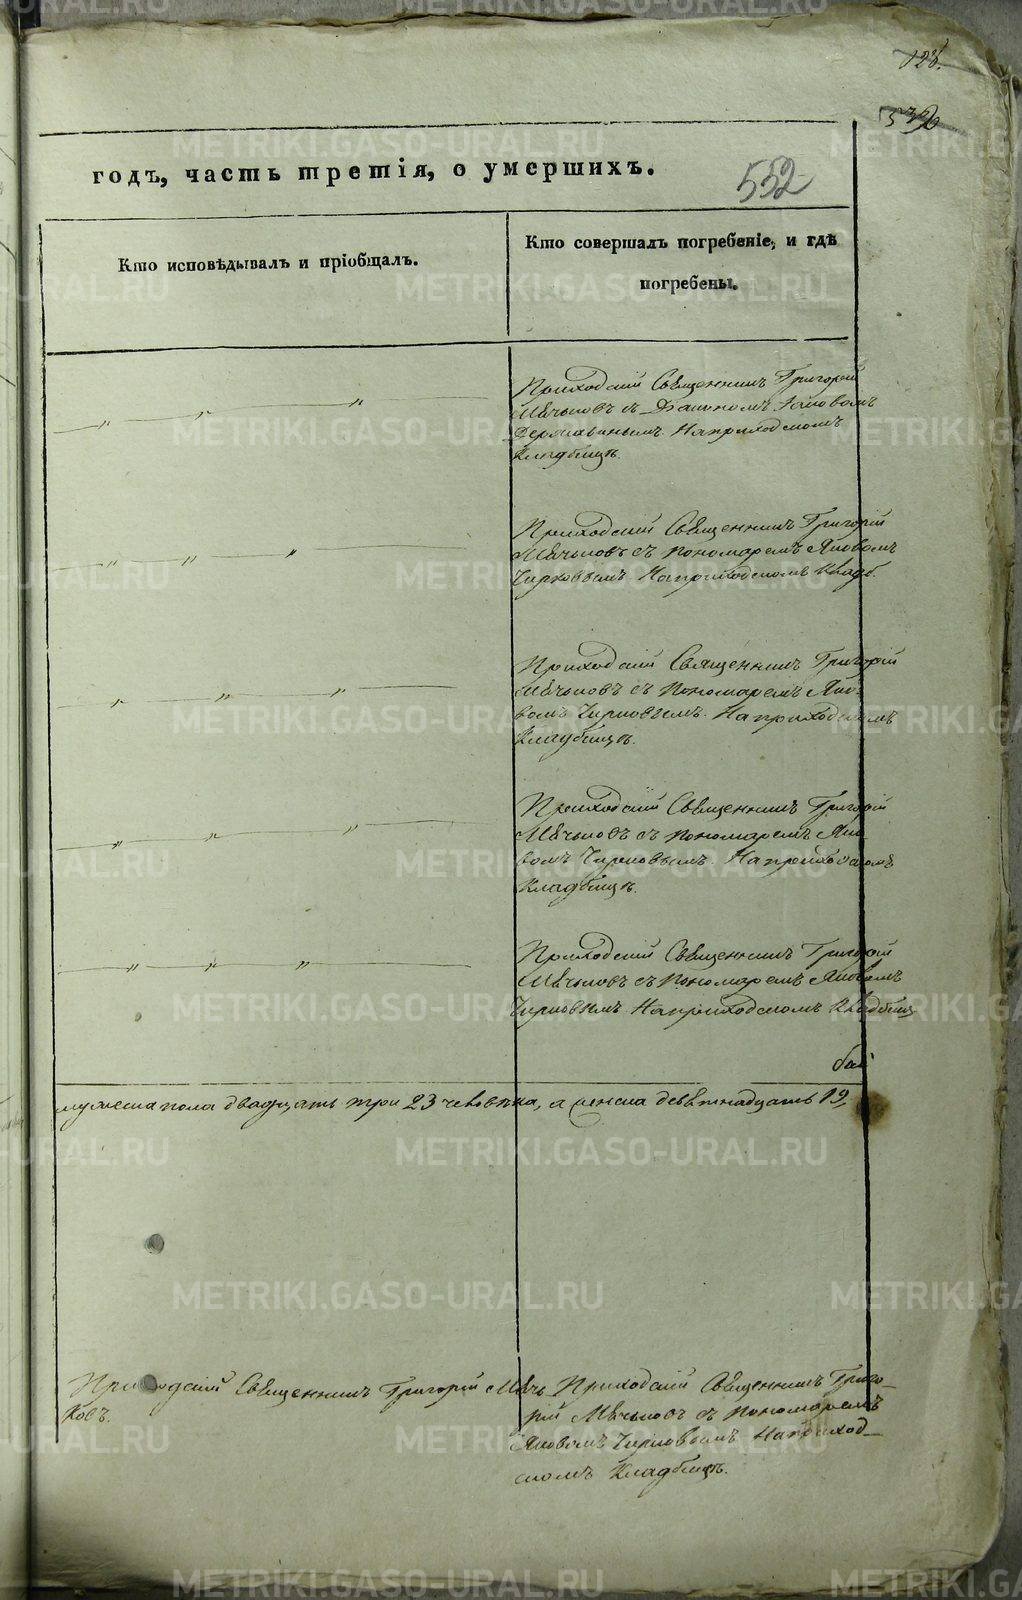 128.
годъ, часть третія, о умершихъ.
552
Кто исповѣдывалъ и пріобщалъ.
Кто совершалъ погребеніе, и гдѣ
погребены.
Приходскій Священникъ Григорій
Мячьковъ съ Дьякономъ Іаковомъ
На приходскомъ
Кладбищѣ.
Приходскій Священникъ Григорій
Мячьковъ съ Пономаремъ Яковомъ
Чирковымъ. На приходскомъ Кладб.
Приходскій Священникъ Григорій
Мячьковъ съ Пономаремъ Яко-
вомъ Чирковымъ. На приходскомъ
Кладбищѣ.
Приходскій Священникъ Григорій
Мячьковъ съ Пономаремъ Яко-
вомъ Чирковымъ. На приходскомъ
Кладбищѣ.
Приходскій Священникъ Григорій
Мячьковъ съ Пономаремъ Яковомъ
Чирковымъ. На приходскомъ Кладбищ
мужеска пола двадцать три 23 человѣка, а женска девятнадцать 19
Приходскій Священникъ Григорій Мячь
ковъ.
Приходскій Священникъ Григо-
рій Мячьковъ съ Пономаремъ
Яковомъ Чирковымъ. На приход-
скомъ Кладбищѣ.
METRIKI.GASO-URAL.RU